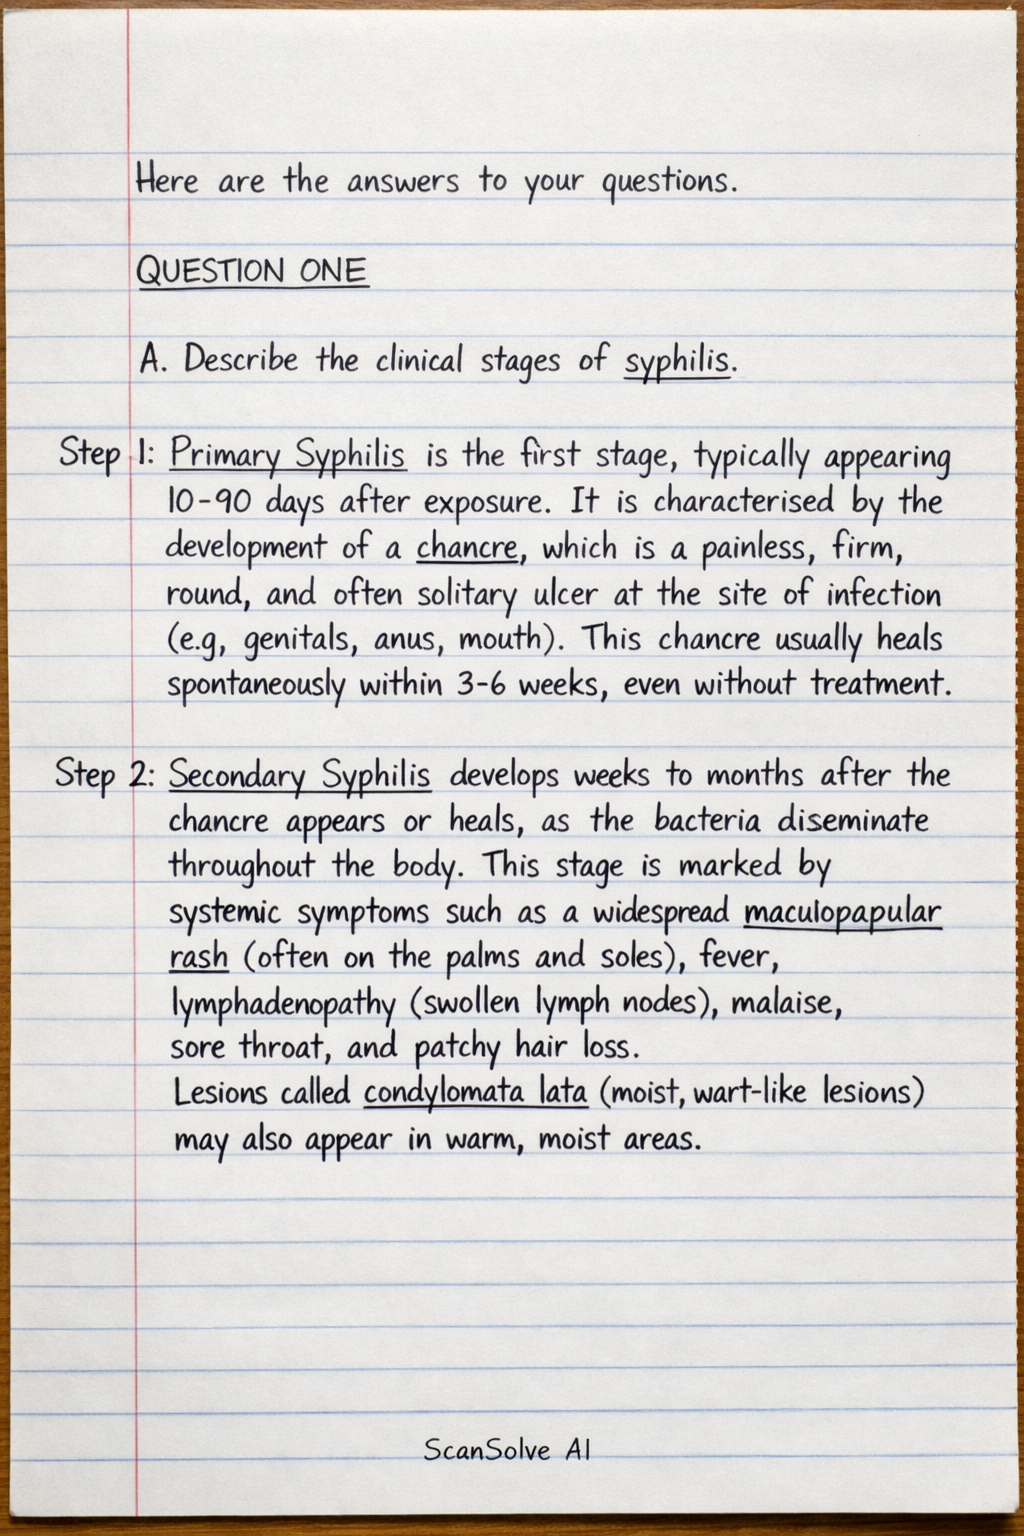 Here are the answers to your questions.
QUESTION ONE
A. Describe the clinical stages of syphilis.
Step 1: Primary Syphilis is the first stage, typically appearing
10-90 days after exposure. It is characterised by the
development of a chancre, which is a painless, firm,
round, and often solitary ulcer at the site of infection
(e.g, genitals, anus, mouth). This chancre usually heals
spontaneously within 3-6 weeks, even without treatment.
Step 2: Secondary Syphilis develops weeks to months after the
chancre appears or heals, as the bacteria diseminate
throughout the body. This stage is marked by
systemic symptoms such as a widespread maculopapular
rash (often on the palms and soles), fever,
lymphadenopathy (swollen lymph nodes), malaise,
sore throat, and patchy hair loss.
Lesions called condylomata lata (moist, wart-like lesions)
may also appear in warm, moist areas.
ScanSolve AI